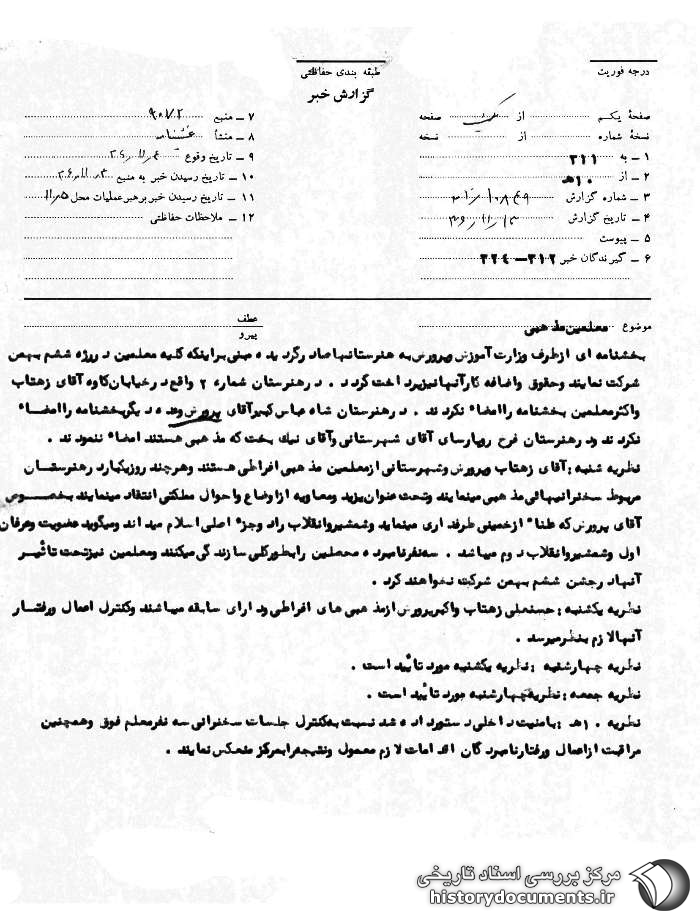 درجه فوریت
طبقه بندی حفاظتی
گزارش خبر
صفحهٔ یکم از صفحه
نسخهٔ شماره از نسخه
۱ ـ به ۳۱۱
۲ ـ از ۱۰ هـ
۳ ـ شماره گزارش
۴ ـ تاریخ گزارش
۵ ـ پیوست
۶ ـ گیرندگان خبر ۳۱۲ ـ ۳۲۴
۷ ـ منبع ۹۰۷۲
۸ ـ منشأ
۹ ـ تاریخ وقوع
۱۰ ـ تاریخ رسیدن خبر به منبع
۱۱ ـ تاریخ رسیدن خبر برهبر عملیات محل
۱۲ ـ ملاحظات حفاظتی
موضوع معلمین مذهبی
عطف
پیرو
بخشنامه ای از طرف وزارت آموزش و پرورش به هنرستانها صادر گردیده مبنی بر اینکه کلیه معلمین در رژه ششم بهمن
شرکت نمایند وحقوق واضافه کار آنها نیز پرداخت گردد . در هنرستان شماره ۲ واقع در خیابان کاوه آقای زهتاب
واکثر معلمین بخشنامه را امضاء نکردند . در هنرستان شاه عباس کبیر آقای پرورش وعده دیگر بخشنامه را امضاء
نکردند ودر هنرستان فرح روپارسای آقای شهرستانی وآقای نیک بخت که مذهبی هستند امضاء ننمودند .
نظریه شنبه : آقای زهتاب وپرورش وشهرستانی از معلمین مذهبی افراطی هستند وهر چند روز یکبار در هنرستان
مربوط سخنرانیهائی مذهبی مینمایند وتحت عنوان یزید ومعاویه از اوضاع واحوال مملکتی انتقاد مینمایند بخصوص
آقای پرورش که علناً از خمینی طرفداری مینماید وشمشیر وانقلاب را دو جزء اصلی اسلام میداند ومیگوید عضویت وعرفان
اول وشمشیر وانقلاب دوم میباشد . سه نفر نامبرده محصلین را بطور کلی سازندگی میکنند ومعلمین نیز تحت تأثیر
آنها در جشن ششم بهمن شرکت نخواهند کرد .
نظریه یکشنبه : حسنعلی زهتاب واکبر پرورش از مذهبی های افراطی ودارای سابقه میباشند وکنترل اعمال ورفتار
آنها لازم بنظر میرسد .
نظریه چهارشنبه : نظریه یکشنبه مورد تأیید است .
نظریه جمعه : نظریه چهارشنبه مورد تأیید است .
نظریه ۱۰ هـ : بامنیت داخلی دستور داده شد نسبت به کنترل جلسات سخنرانی سه نفر معلم فوق وهمچنین
مراقبت از اعمال ورفتار نامبردگان اقدامات لازم معمول ونتیجه را بمرکز منعکس نمایند .
مرکز بررسی اسناد تاریخی
historydocuments.ir